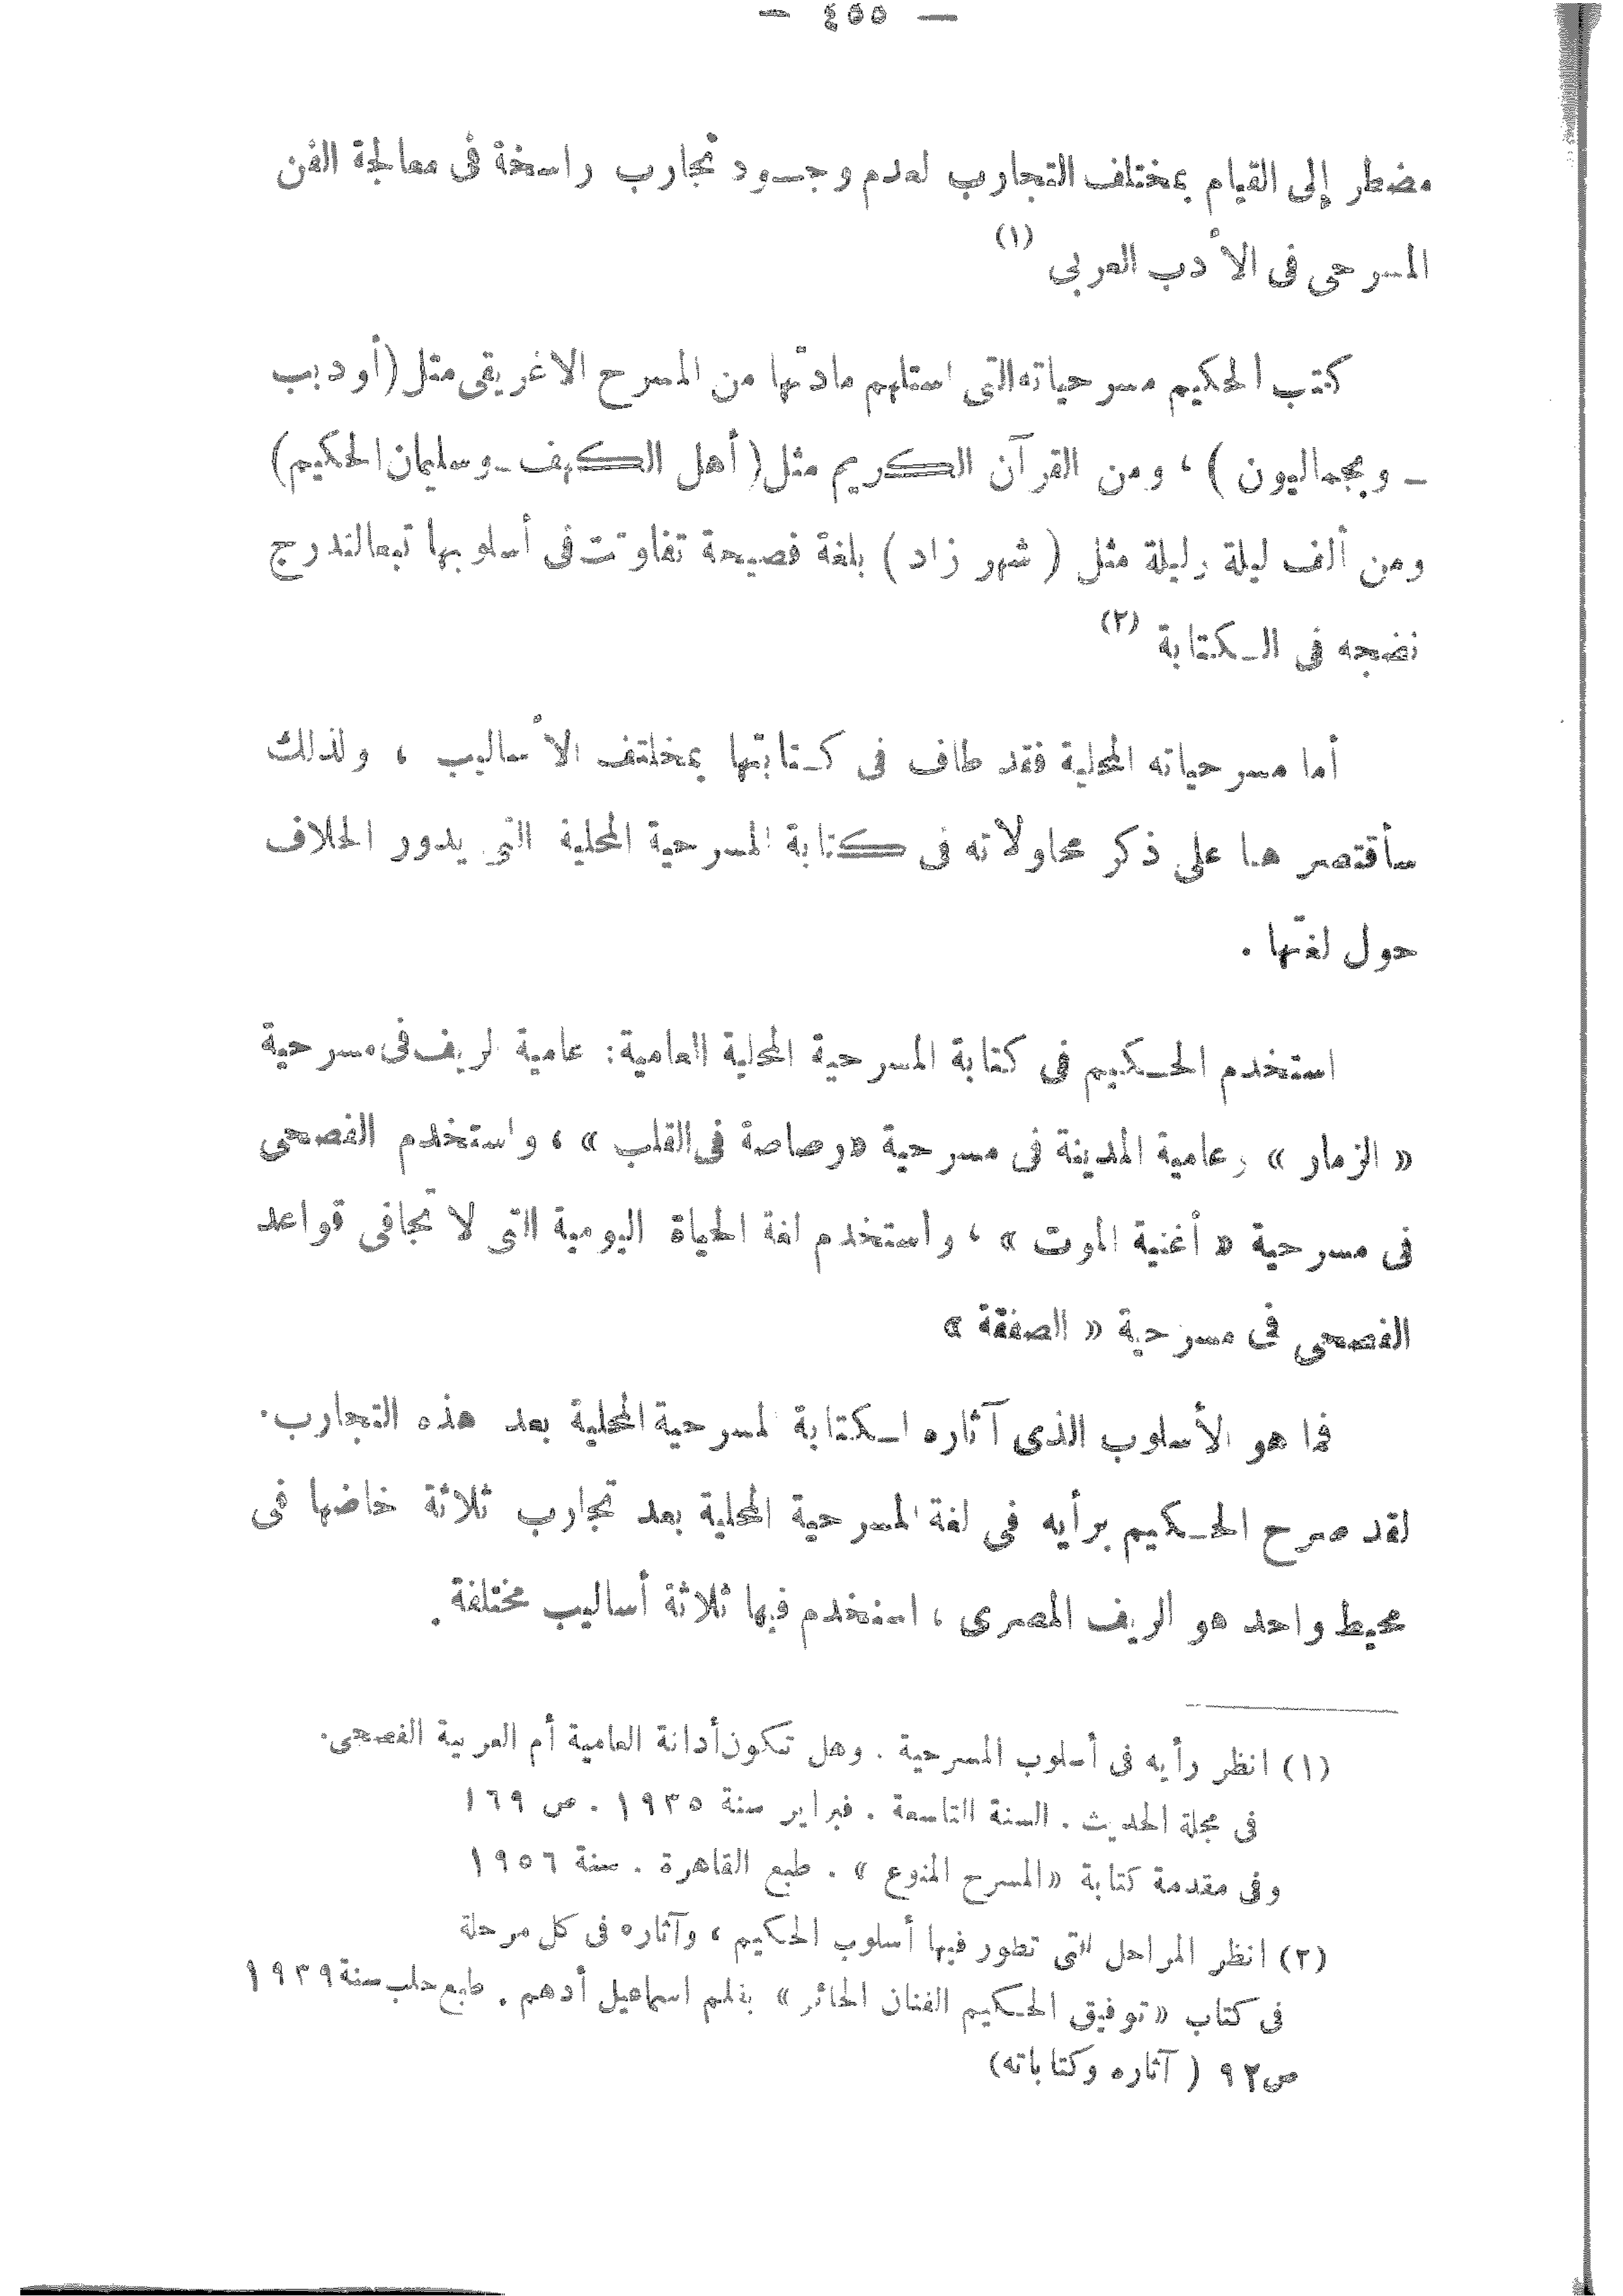 — ٤٥٥ —
مضطر إلى القيام بمختلف التجارب لعدم وجود تجارب راسخة فى معالجة الفن
المسرحى فى الأدب العربى (١)
كتب الحكيم مسرحياته التى استلهم مادتها من المسرح الاغريقى مثل (أوديب
ـ وبجماليون) ، ومن القرآن الكريم مثل (أهل الكهف ـ وسليمان الحكيم)
ومن ألف ليلة وليلة مثل (شهر زاد) بلغة فصيحة تفاوتت فى أسلوبها تبعا لتدرج
نضجه فى الكتابة (٢)
أما مسرحياته المحلية فقد طاف فى كتابتها بمختلف الأساليب ، ولذلك
سأقتصر هنا على ذكر محاولاته فى كتابة المسرحية المحلية التى يدور الخلاف
حول لغتها .
استخدم الحكيم فى كتابة المسرحية المحلية العامية: عامية الريف فى مسرحية
« الزمار » وعامية المدينة فى مسرحية «رصاصة فى القلب» ، واستخدم الفصحى
فى مسرحية « أغنية الموت » ، واستخدم لغة الحياة اليومية التى لا تجافى قواعد
الفصحى فى مسرحية « الصفقة »
فما هو الأسلوب الذى آثاره لكتابة المسرحية المحلية بعد هذه التجارب.
لقد صرح الحكيم برأيه فى لغة المسرحية المحلية بعد تجارب ثلاثة خاضها فى
محيط واحد هو الريف المصرى ، استخدم فيها ثلاثة أساليب مختلفة .
(١) انظر رأيه فى أسلوب المسرحية . وهل تكون أداتة العامية أم العربية الفصحى.
فى مجلة الحديث . السنة التاسعة . فبراير سنة ١٩٣٥ . ص ١٦٩
وفى مقدمة كتابة «المسرح المنوع» . طبع القاهرة . سنة ١٩٥٦
(٢) انظر المراحل التى تطور فيها أسلوب الحكيم ، وآثاره فى كل مرحلة
فى كتاب «توفيق الحكيم الفنان الحائر» بقلم اسماعيل أدهم . طبع حلب سنة ١٩٣٩
ص ٩٢ (آثاره وكتاباته)